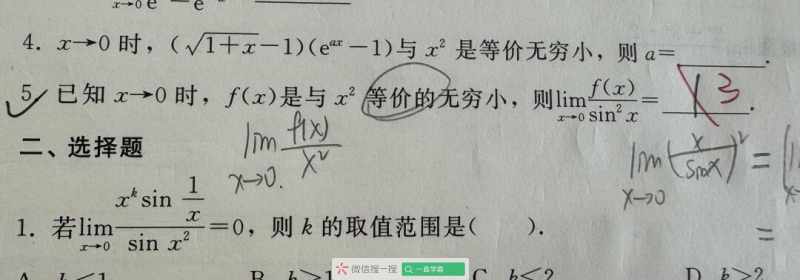 x→0 e −e
4. x→0 时，(√(1+x)−1)(e^{ax}−1)与 x² 是等价无穷小，则 a=______.
5. 已知 x→0 时，f(x)是与 x² 等价的无穷小，则lim_{x→0} f(x)/sin²x = 1 3.
二、选择题
lim_{x→0} f(x)/x²
lim_{x→0} (x/sinx)² =
=
1. 若lim_{x→0} (x^k sin 1/x)/(sin x²)=0，则 k 的取值范围是(  ).
A. k<1 B. k>1 C. k<2 D. k>2
微信搜一搜 一直学霸